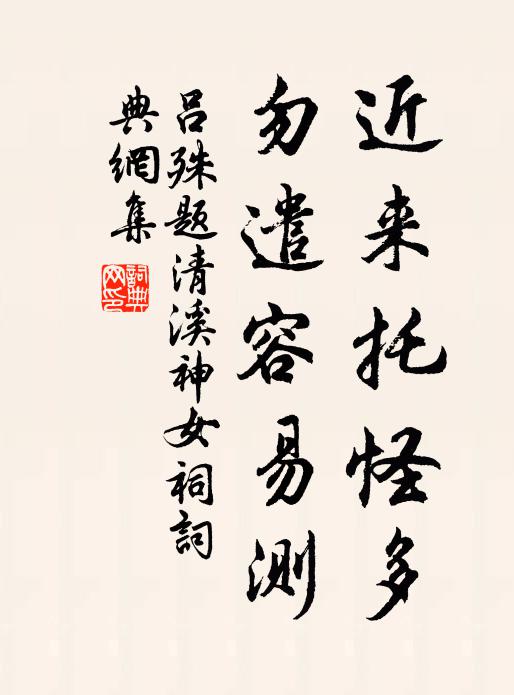 近来托怪多
勿遣容易测
吕殊题清溪神女祠詞
典網集
詞典
网印